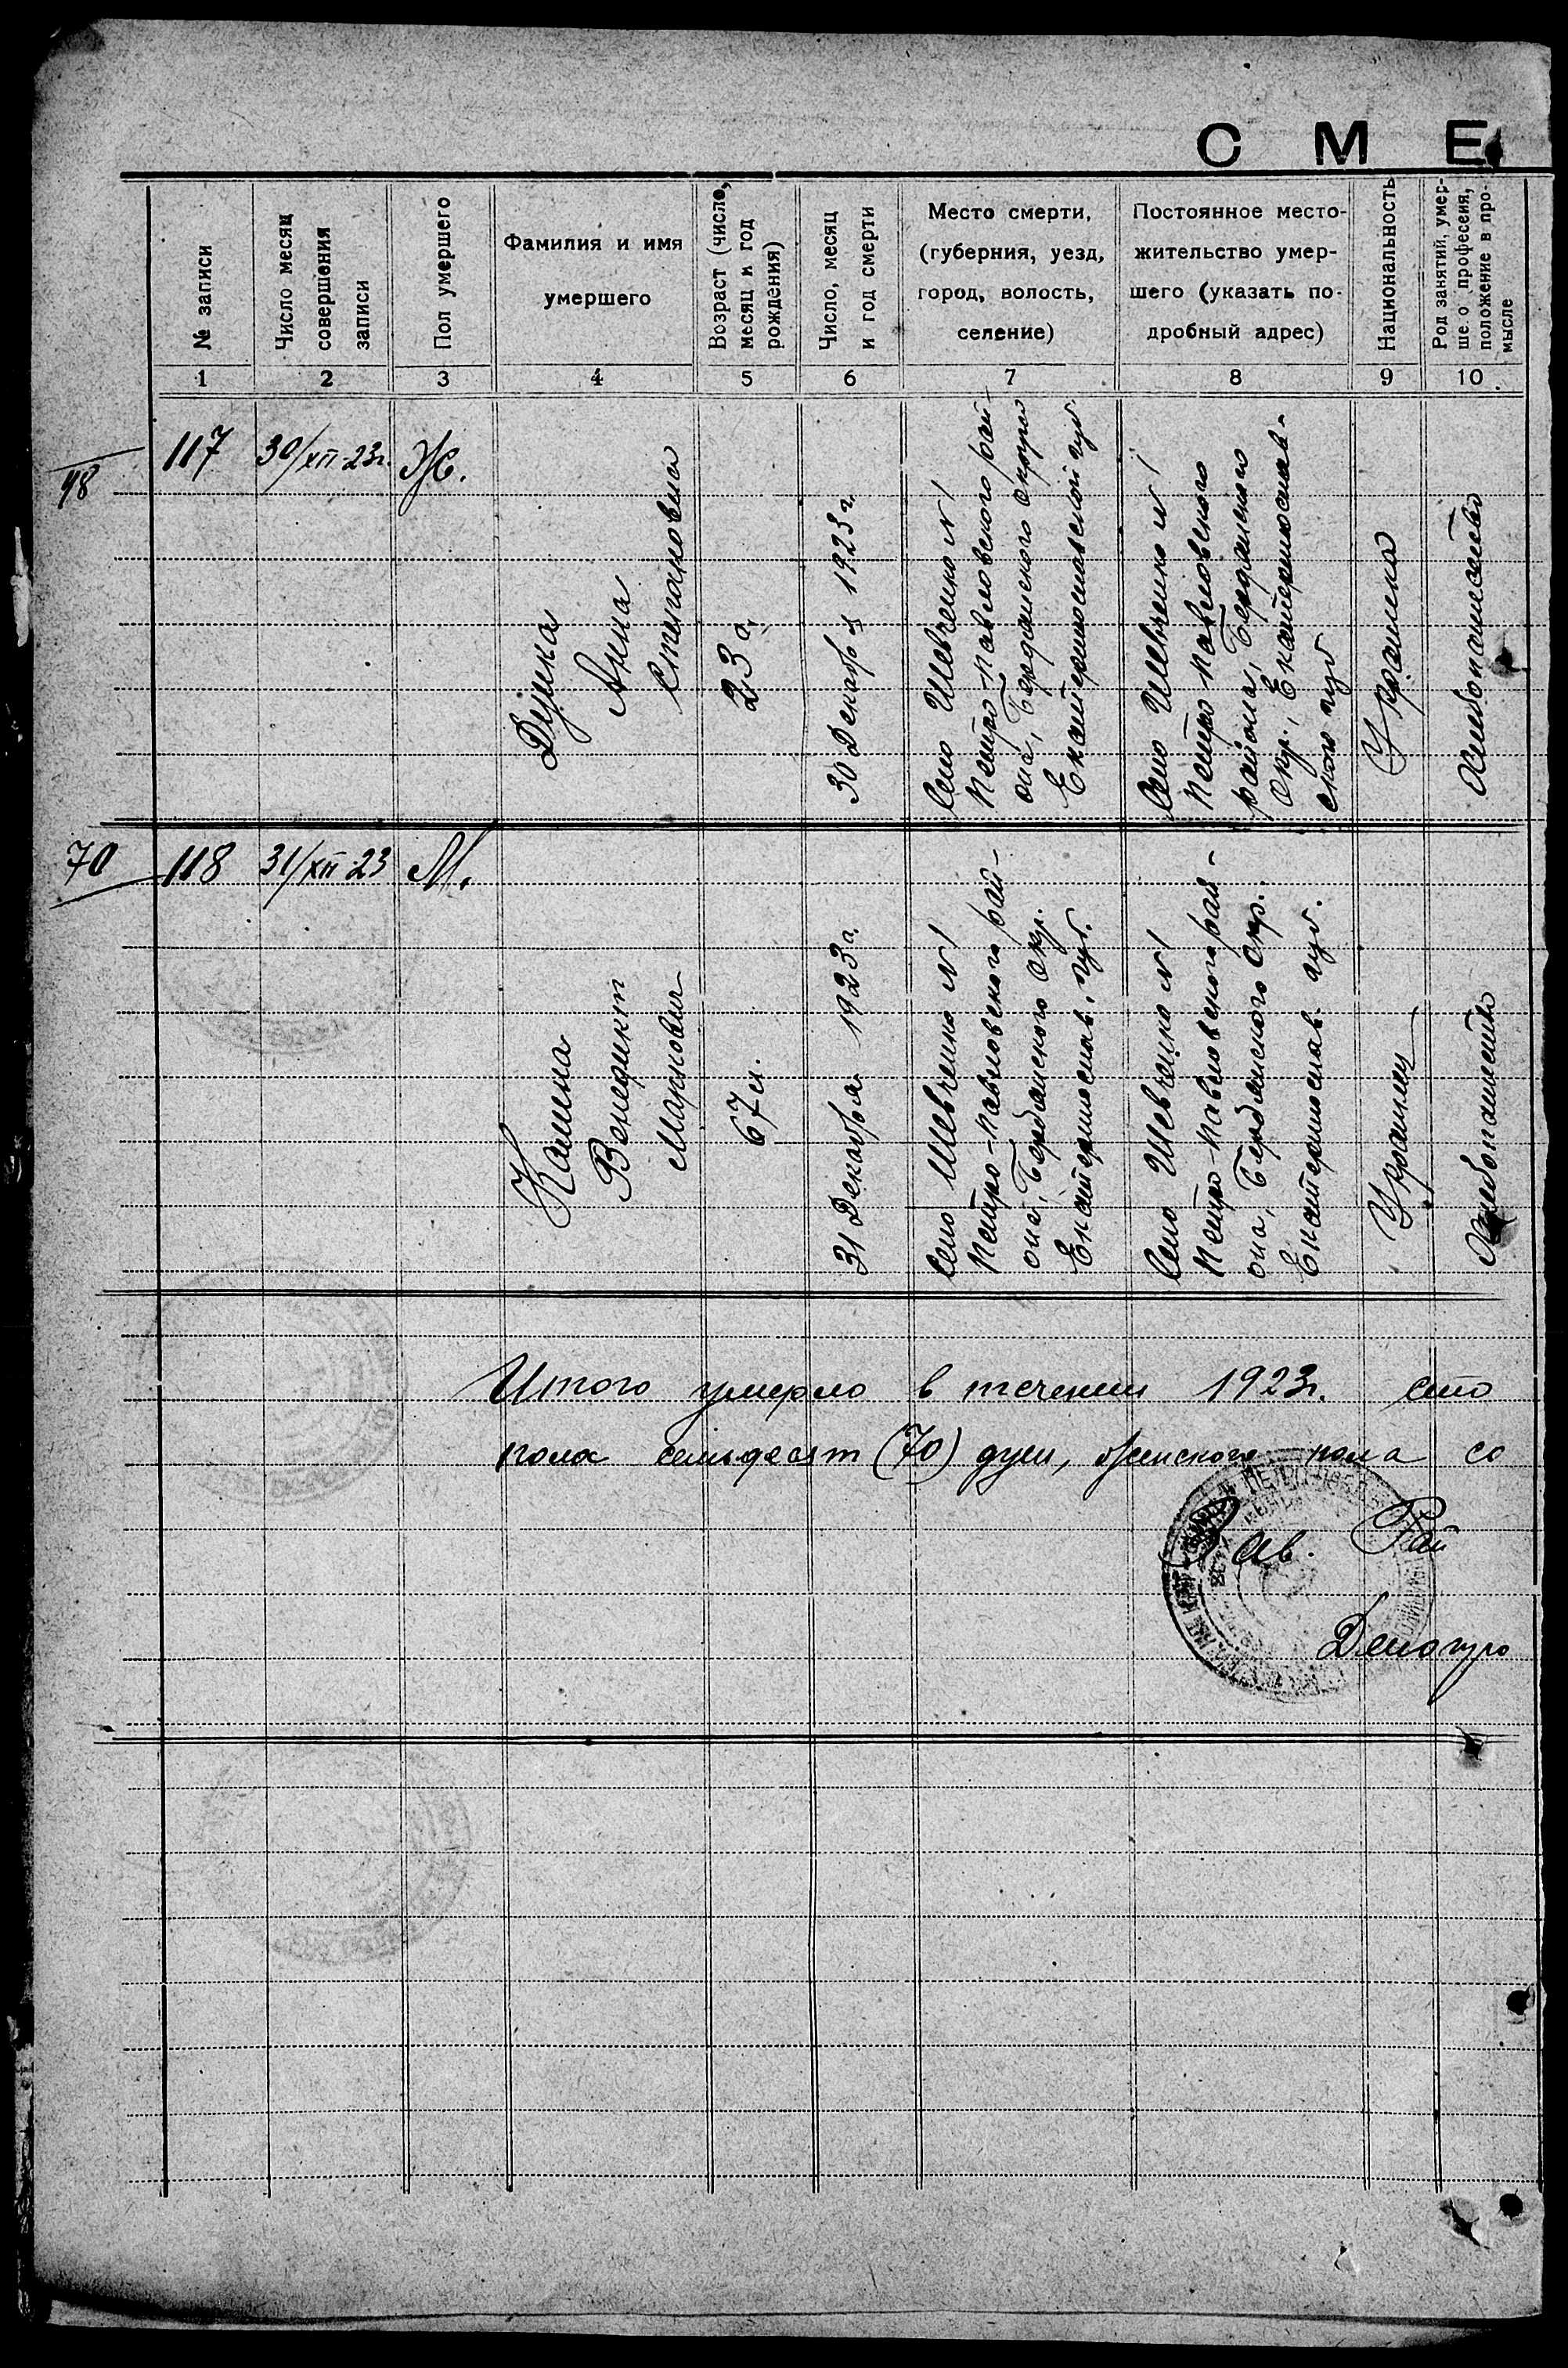 С М Е
№ записи
Число месяц
совершения
записи
Пол умершего
Фамилия и имя
умершего
Возраст (число,
месяц и год
рождения)
Число, месяц
и год смерти
Место смерти,
(губерния, уезд,
город, волость,
селение)
Постоянное место-
жительство умер-
шего (указать по-
дробный адрес)
Национальность
Род занятий, умер-
ше. о профессия,
положение в про-
мысле
1 2 3 4 5 6 7 8 9 10
48
117
30/XII 23г.
Ж.
Дузика
Анна
Степановна
23 г.
30 Декабря 1923 г.
Село Шевченко №1
Петро-Павловского рай-
она, Бердянского Округа
Екатеринославской губ.
Село Шевченко №1
Петро Павловского
района, Бердянского
Окр., Екатеринослав-
ского губ
Украинка
Хлебопашество
70
118
31/XII 23
М.
Калина
Венедикт
Маркович
67 л.
31 Декабря 1923 г.
Село Шевченко №1
Петро-Павловского рай-
она, Бердянского Окр.
Екатеринослав. губ.
Село Шевченко №1
Петро-Павловского рай-
она, Бердянского Окр.
Екатеринослав. губ.
Украинец
Хлебопашество
Итого умерло в течении 1923г. сто
пола семьдесят (70) душ, женского пола со
Зав. Рай
Делопро